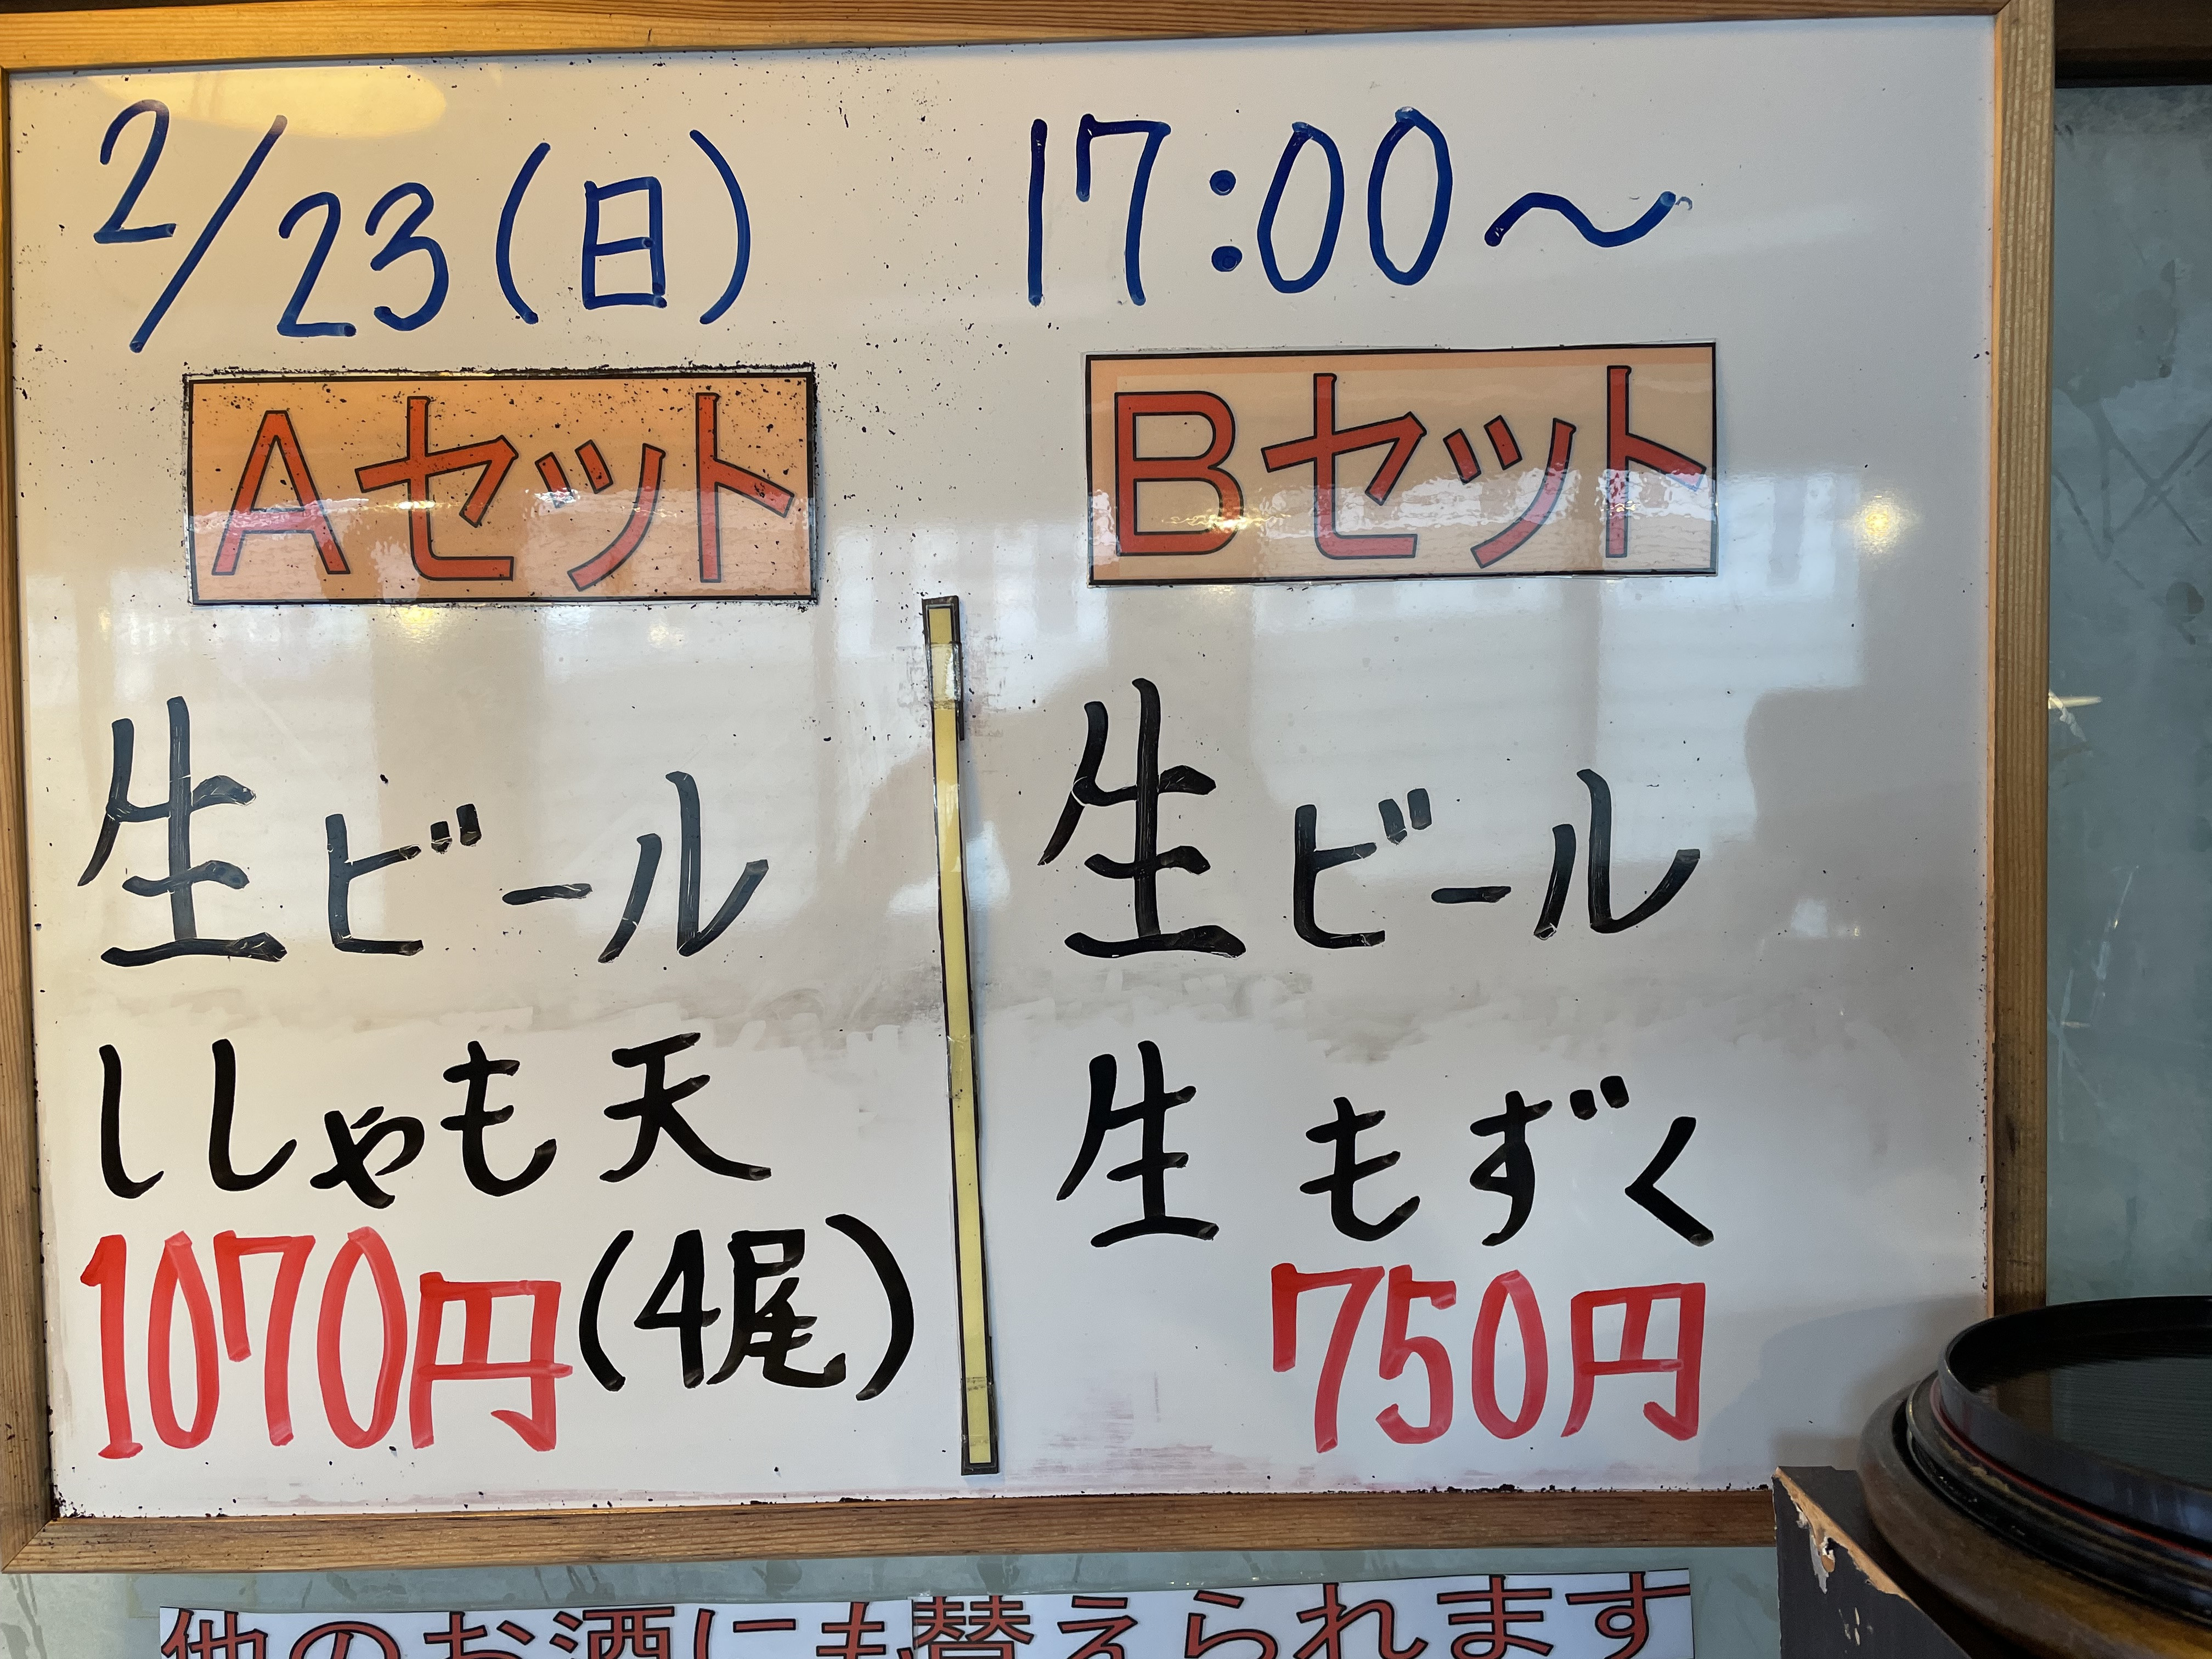 2/23(日) 17:00～
Aセット
生ビール
ししゃも天
1070円(4尾)
Bセット
生ビール
生もずく
750円
他のお酒にも替えられます